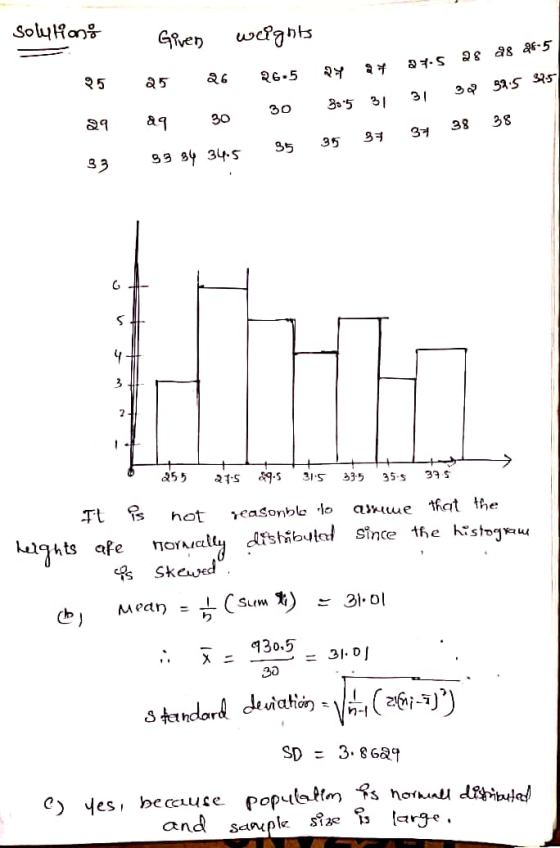 Solution:
Given weights
25 25 26 26.5 27 27 27.5 28 28 28.5
29 29 30 30 30.5 31 31 32 32.5 32.5
33 33 34 34.5 35 35 37 37 38 38
6
5
4
3
2
1
0
25.5 27.5 29.5 31.5 33.5 35.5 37.5
It is not reasonble to assume that the
heights are normally distributed since the histogram
is skewed.
(b) Mean = 1/n (sum xi) = 31.01
∴ x̄ = 930.5/30 = 31.01
standard deviation = √(1/n-1 (Σ(xi-x̄)²))
SD = 3.8629
c) yes, because population is normall distributed
and sample size is large.